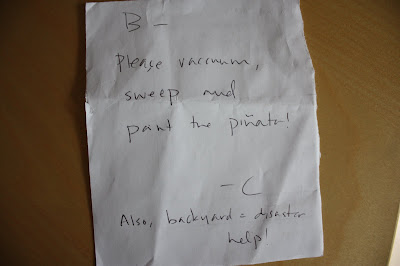 B –
Please vaccuum,
sweep and
paint the piñata!
– C
Also, backyard = disaster
help!